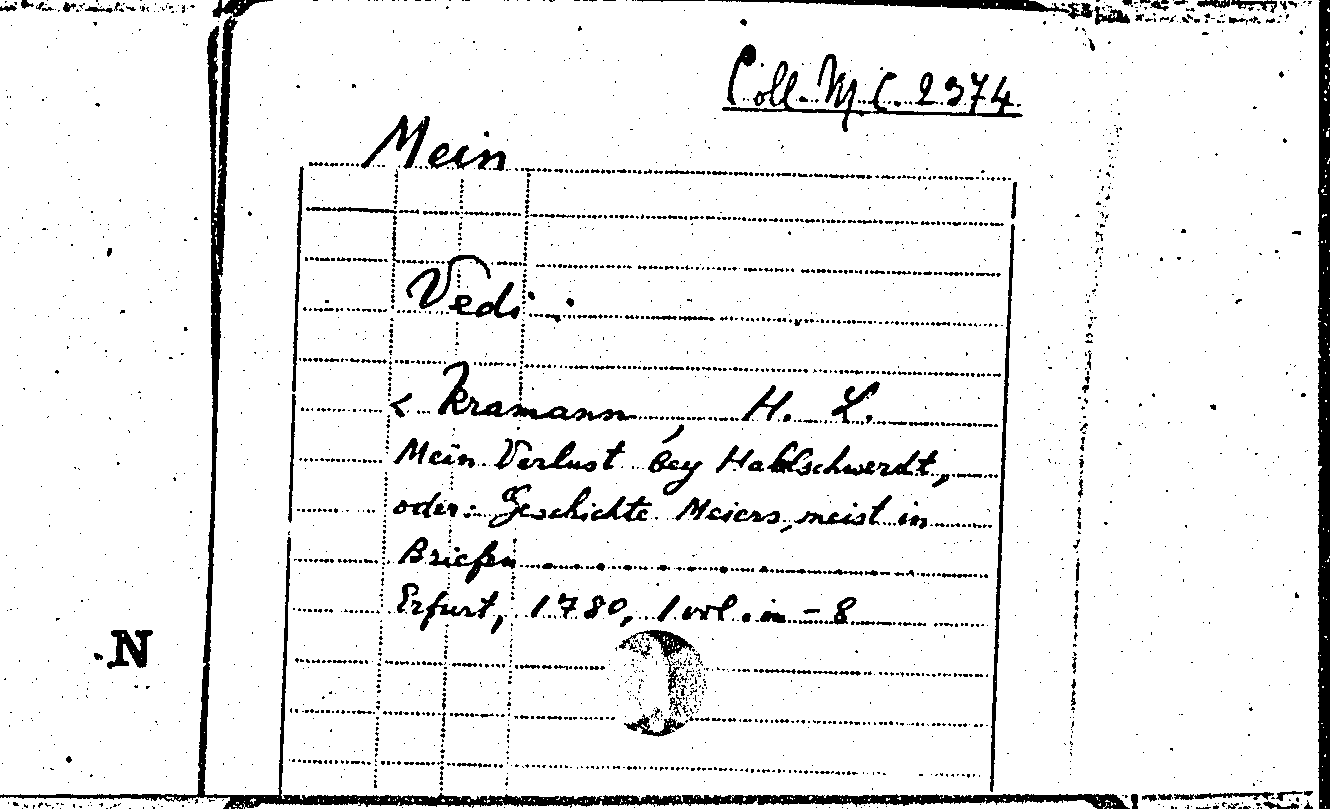 Coll. M.C. 2374
Mein
Vedi:
< Kramann, H. L.
Mein Verlust bey Habelschwerdt,
oder: Geschichte Meiers, meist in
Briefen ..........
Erfurt, 1780, 1 vol. in-8
.N